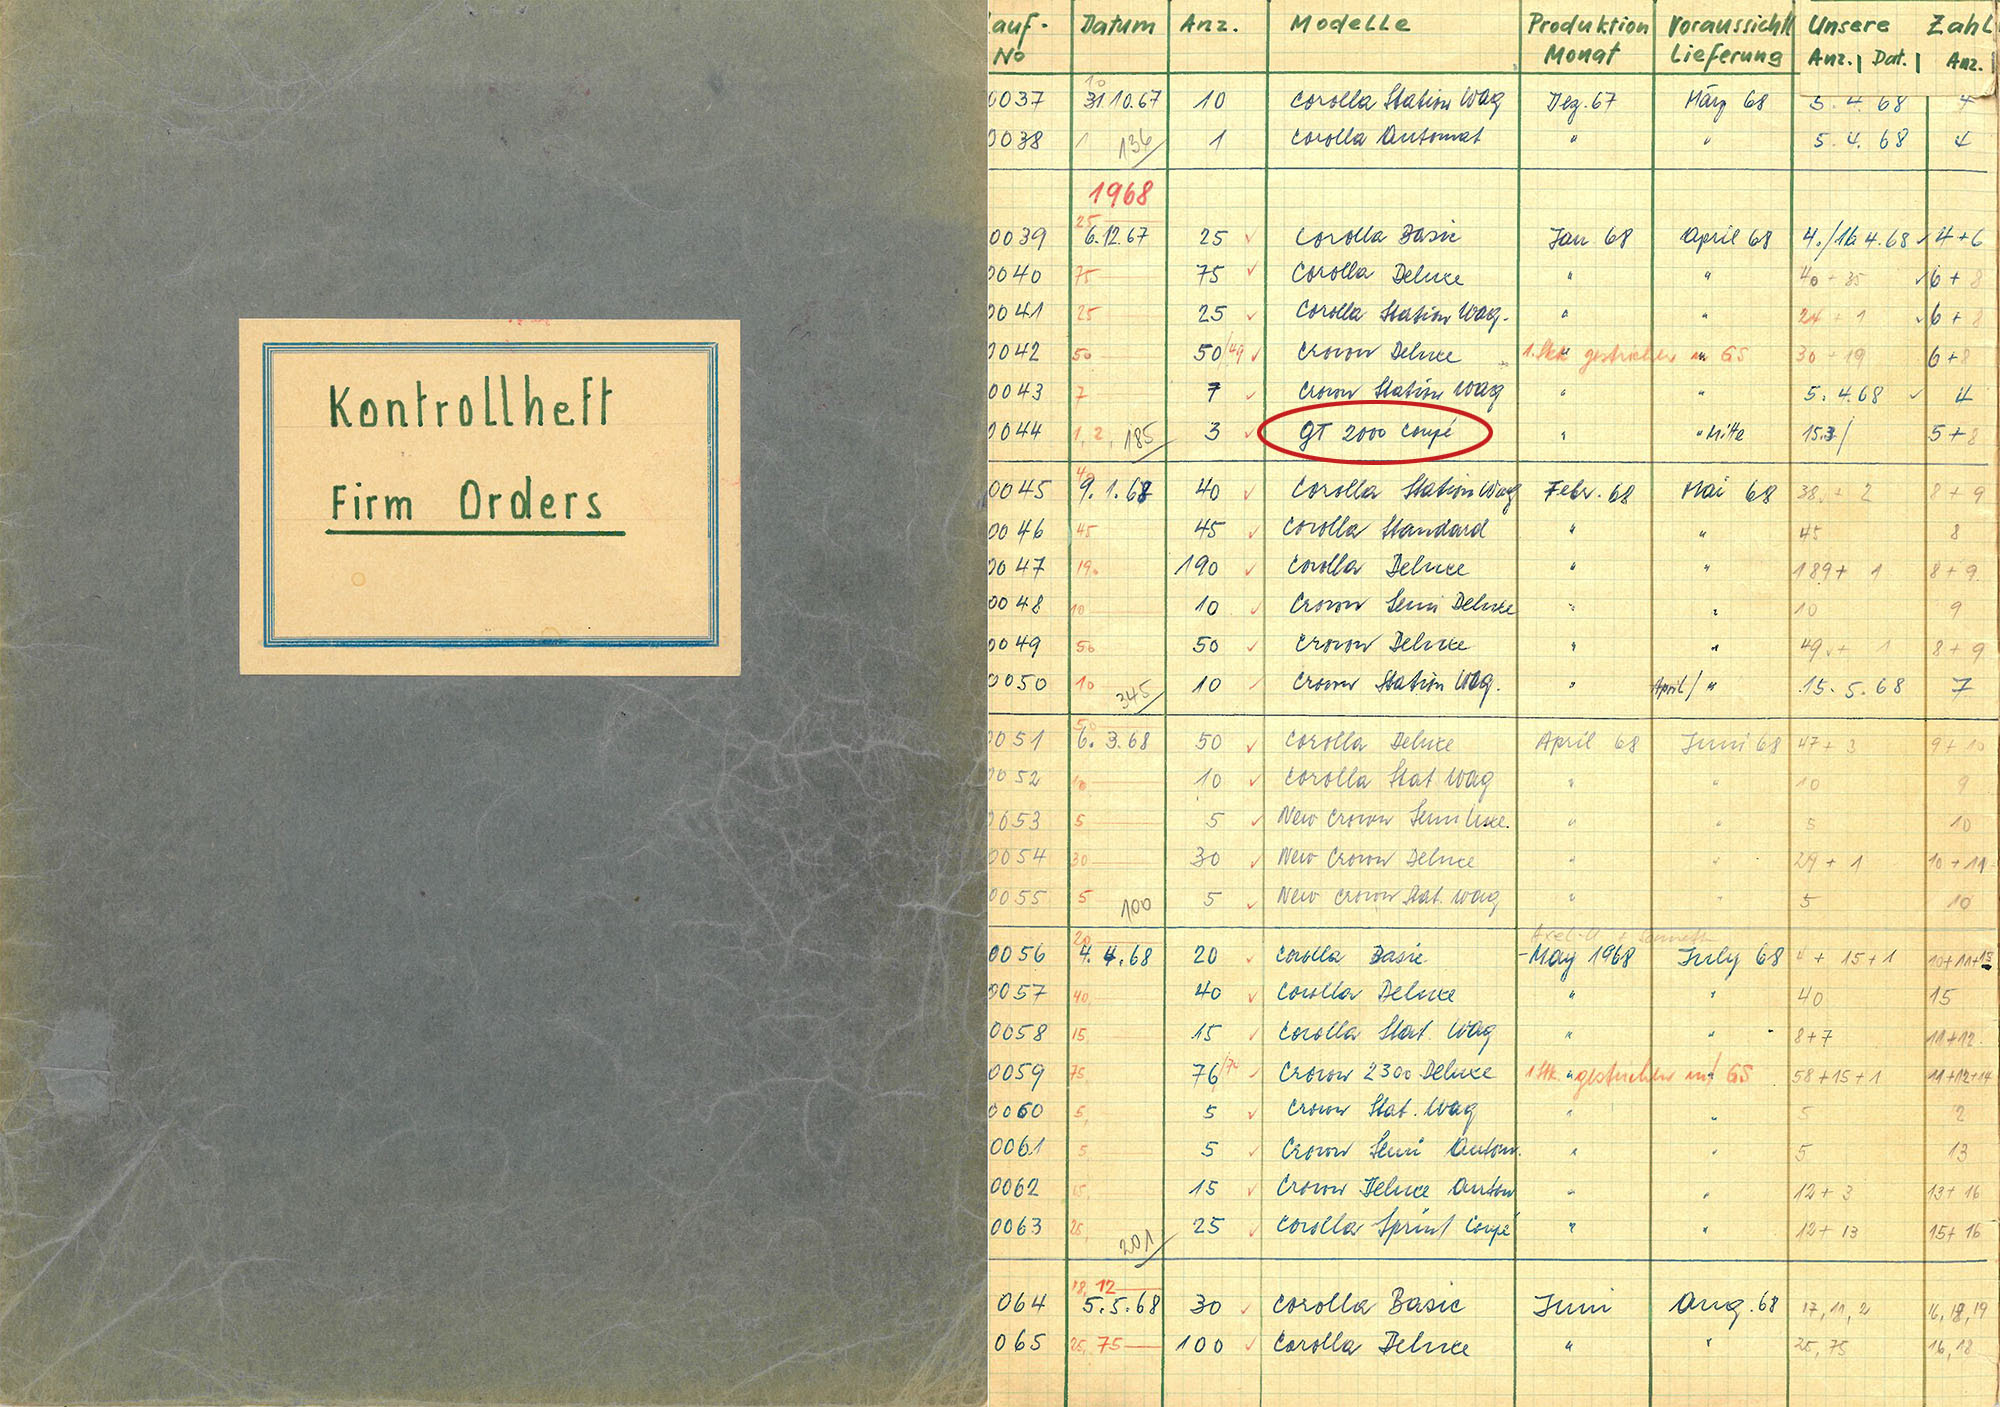 Kontrollheft
Firm Orders
Lauf- Datum Anz. Modelle Produktion Voraussichtl Unsere Zahl
No Monat Lieferung Anz. | Dat. | Anz.
10
0037 31 10.67 10 Corolla Station Wag Dez. 67 März 68 5. 4. 68 4
0038 136 1 Corolla Automat " " 5. 4. 68 4
1968
25
0039 6.12.67 25 Corolla Basic Jan 68 April 68 4./16.4.68 4+6
0040 75 75 Corolla Deluxe " " 40 + 35 6 + 8
0041 25 25 Corolla Station Wag. " " 24 + 1 6 + 8
0042 50 50/49 Crown Deluxe 1. Stk gestrichen " GS 30 + 19 6+8
0043 7 7 Crown Station Wag " " 5. 4.68 4
0044 1, 2, 185 3 GT 2000 Coupé " " Mitte 15.3/ 5+8
0045 9. 1. 68 40 Corolla Station Wag Febr. 68 Mai 68 38 + 2 8 + 9
0046 45 45 Corolla Standard " " 45 8
0047 190 190 Corolla Deluxe " " 189+ 1 8+9
0048 10 10 Crown Semi Deluxe " " 10 9
0049 50 50 Crown Deluxe " " 49 + 1 8 + 9
0050 10 345 10 Crown Station Wag. " April/ " 15. 5. 68 7
50
0051 6. 3.68 50 Corolla Deluxe April 68 Juni 68 47+ 3 9+10
0052 10 10 Corolla Stat Wag " " 10 9
0053 5 5 New Crown Semi luxe. " " 5 10
0054 30 30 New Crown Deluxe " " 29 + 1 10+11
0055 5 100 5 New Crown Stat. Wag " " 5 10
20
0056 4. 4.68 20 Corolla Basic May 1968 July 68 4 + 15+1 10+11+15
0057 40 40 Corolla Deluxe " " 40 15
0058 15 15 Corolla Stat. Wag " " 8+7 11+12
0059 75 76/75 Crown 2300 Deluxe 1 Stk. " gestrichen " GS 58+15+1 11+12+14
0060 5 5 Crown Stat. Wag " " 5 2
0061 5 5 Crown Semi Autom. " " 5 13
0062 15 15 Crown Deluxe Autom " " 12+ 3 13+ 16
0063 25 201 25 Corolla Sprint Coupé " " 12+ 13 15+ 16
18, 12
064 5.5.68 30 Corolla Basic Juni Aug. 68 17, 11, 2 16, 18, 19
065 25, 75 100 Corolla Deluxe " " 25, 75 16, 18